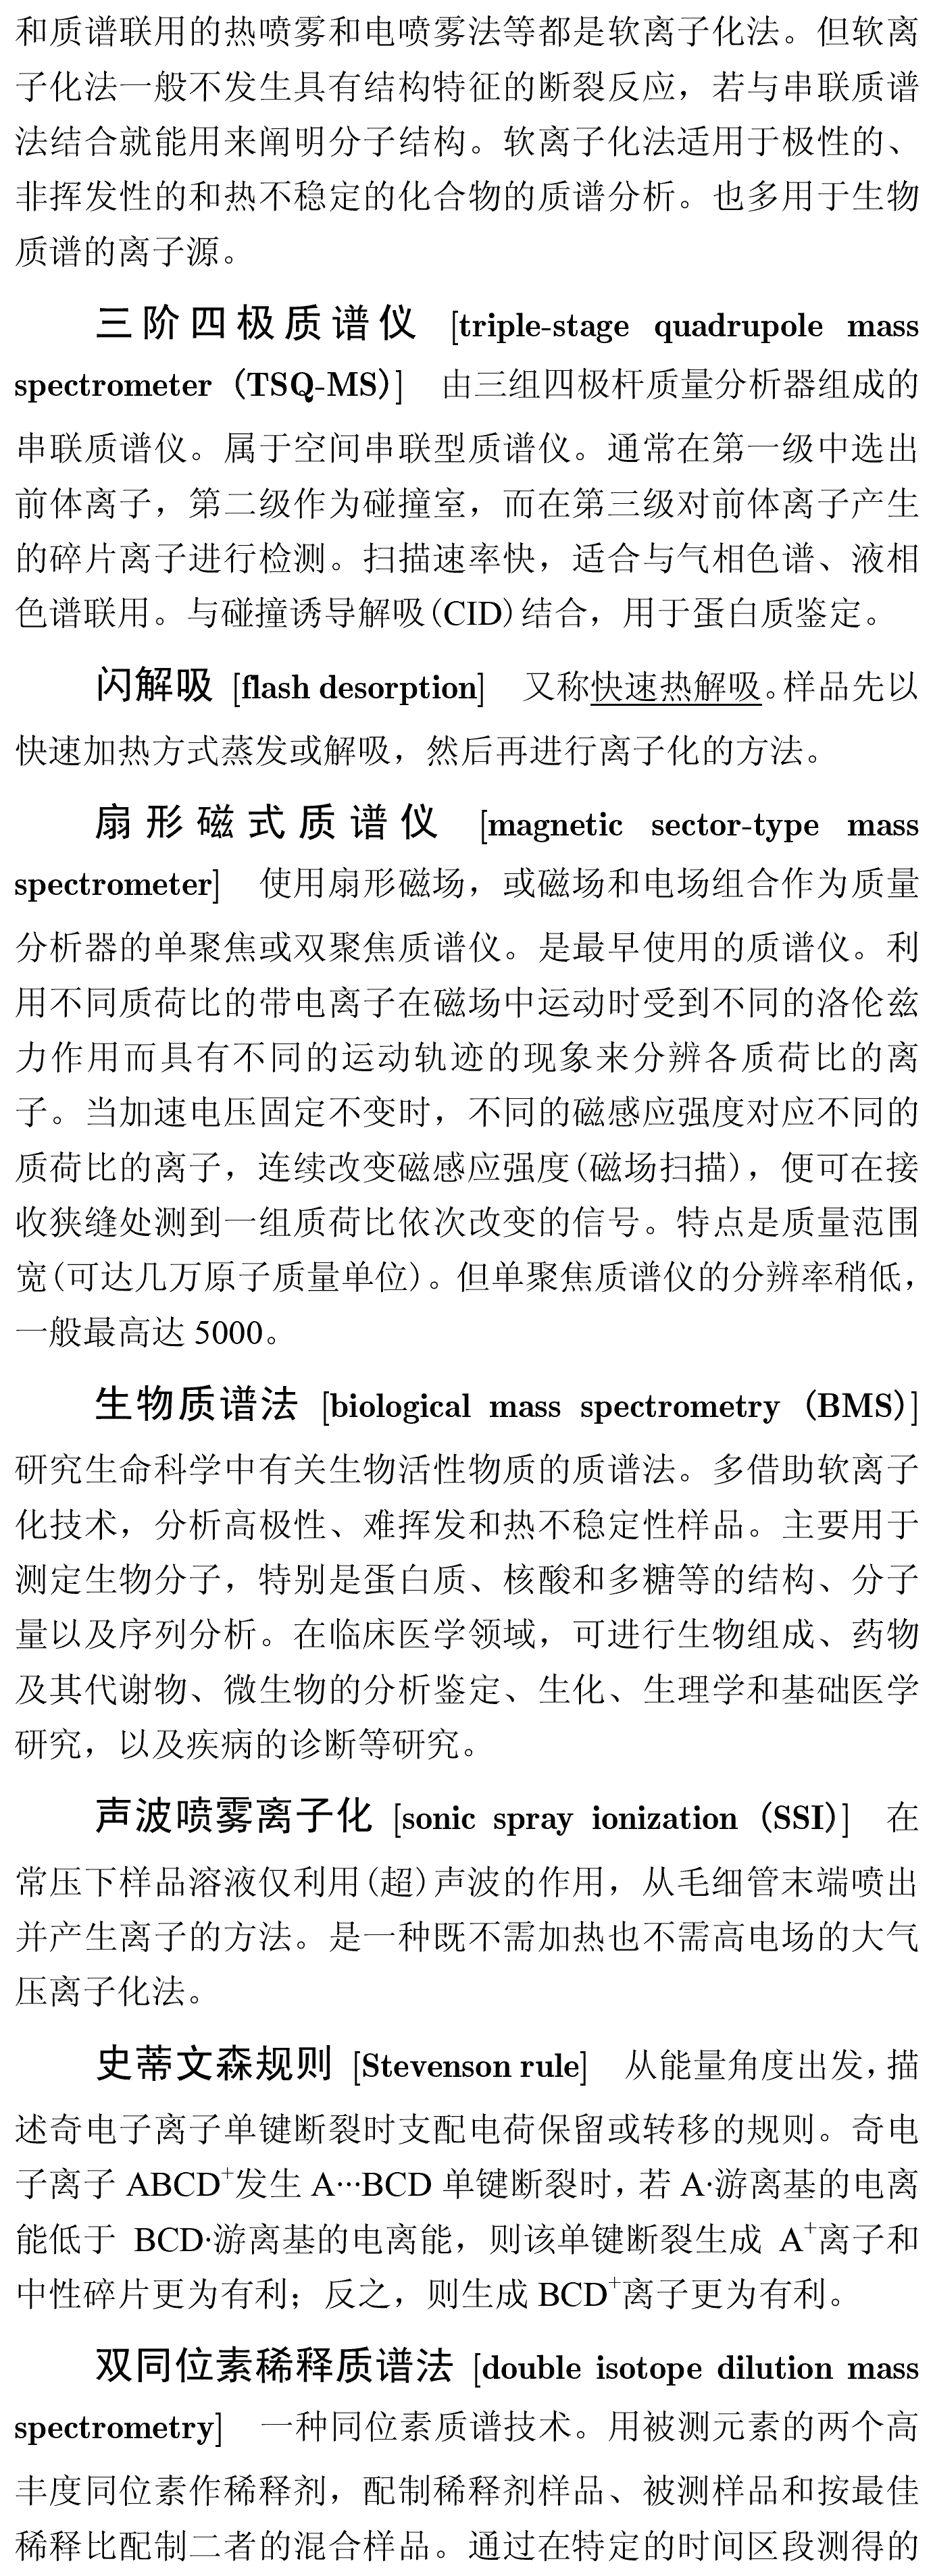 和质谱联用的热喷雾和电喷雾法等都是软离子化法。但软离
子化法一般不发生具有结构特征的断裂反应，若与串联质谱
法结合就能用来阐明分子结构。软离子化法适用于极性的、
非挥发性的和热不稳定的化合物的质谱分析。也多用于生物
质谱的离子源。
三阶四极质谱仪 [triple-stage quadrupole mass
spectrometer (TSQ-MS)] 由三组四极杆质量分析器组成的
串联质谱仪。属于空间串联型质谱仪。通常在第一级中选出
前体离子，第二级作为碰撞室，而在第三级对前体离子产生
的碎片离子进行检测。扫描速率快，适合与气相色谱、液相
色谱联用。与碰撞诱导解吸(CID)结合，用于蛋白质鉴定。
闪解吸 [flash desorption] 又称快速热解吸。样品先以
快速加热方式蒸发或解吸，然后再进行离子化的方法。
扇形磁式质谱仪 [magnetic sector-type mass
spectrometer] 使用扇形磁场，或磁场和电场组合作为质量
分析器的单聚焦或双聚焦质谱仪。是最早使用的质谱仪。利
用不同质荷比的带电离子在磁场中运动时受到不同的洛伦兹
力作用而具有不同的运动轨迹的现象来分辨各质荷比的离
子。当加速电压固定不变时，不同的磁感应强度对应不同的
质荷比的离子，连续改变磁感应强度(磁场扫描)，便可在接
收狭缝处测到一组质荷比依次改变的信号。特点是质量范围
宽(可达几万原子质量单位)。但单聚焦质谱仪的分辨率稍低，
一般最高达 5000。
生物质谱法 [biological mass spectrometry (BMS)]
研究生命科学中有关生物活性物质的质谱法。多借助软离子
化技术，分析高极性、难挥发和热不稳定性样品。主要用于
测定生物分子，特别是蛋白质、核酸和多糖等的结构、分子
量以及序列分析。在临床医学领域，可进行生物组成、药物
及其代谢物、微生物的分析鉴定、生化、生理学和基础医学
研究，以及疾病的诊断等研究。
声波喷雾离子化 [sonic spray ionization (SSI)] 在
常压下样品溶液仅利用(超)声波的作用，从毛细管末端喷出
并产生离子的方法。是一种既不需加热也不需高电场的大气
压离子化法。
史蒂文森规则 [Stevenson rule] 从能量角度出发，描
述奇电子离子单键断裂时支配电荷保留或转移的规则。奇电
子离子 ABCD⁺发生 A···BCD 单键断裂时，若 A·游离基的电离
能低于 BCD·游离基的电离能，则该单键断裂生成 A⁺离子和
中性碎片更为有利；反之，则生成 BCD⁺离子更为有利。
双同位素稀释质谱法 [double isotope dilution mass
spectrometry] 一种同位素质谱技术。用被测元素的两个高
丰度同位素作稀释剂，配制稀释剂样品、被测样品和按最佳
稀释比配制二者的混合样品。通过在特定的时间区段测得的